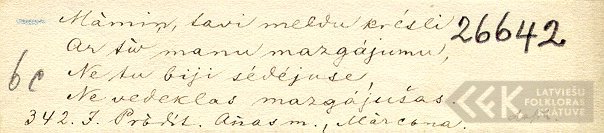 Māmiņ, tavi meldu krēsli
Ar tīr manu mazgājumu,
26642
6c
Ne tu biji sēdējuse,
Ne vedeklas mazgājušas.
342. J. Prēdīt. Annas m., Mārciena.
LATVIEŠU
FOLKLORAS
KRĀTUVE
LFK